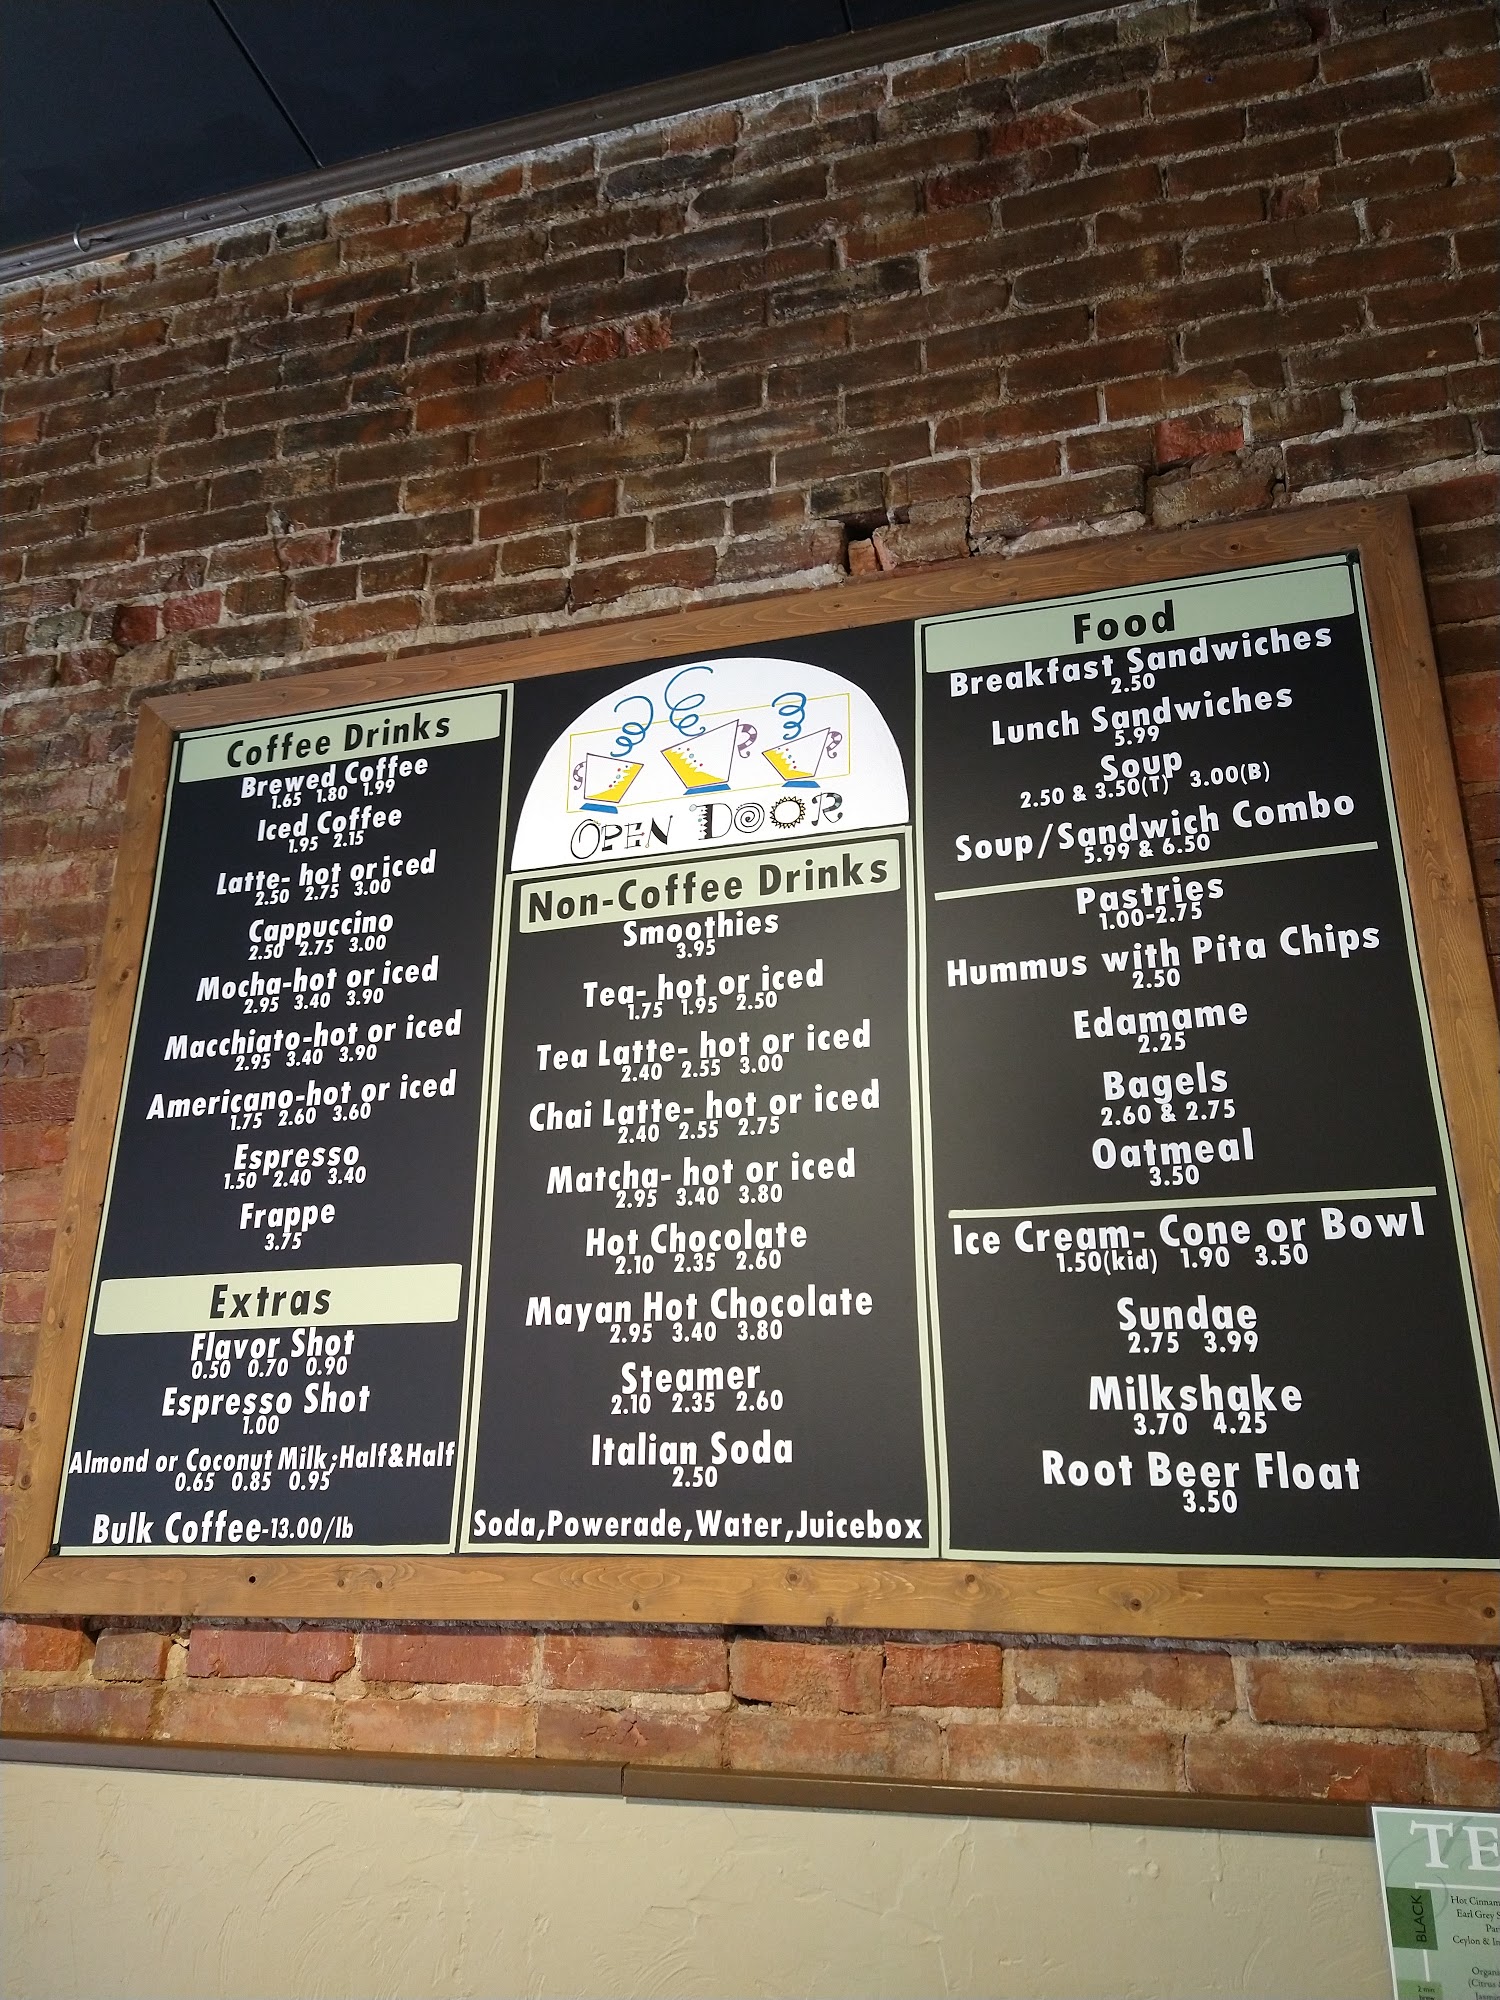 Coffee Drinks
Brewed Coffee
1.65 1.80 1.99
Iced Coffee
1.95 2.15
Latte- hot or iced
2.50 2.75 3.00
Cappuccino
2.50 2.75 3.00
Mocha-hot or iced
2.95 3.40 3.90
Macchiato-hot or iced
2.95 3.40 3.90
Americano-hot or iced
1.75 2.60 3.60
Espresso
1.50 2.40 3.40
Frappe
3.75
Extras
Flavor Shot
0.50 0.70 0.90
Espresso Shot
1.00
Almond or Coconut Milk;Half&Half
0.65 0.85 0.95
Bulk Coffee-13.00/lb
OPEN DOOR
Non-Coffee Drinks
Smoothies
3.95
Tea- hot or iced
1.75 1.95 2.50
Tea Latte- hot or iced
2.40 2.55 3.00
Chai Latte- hot or iced
2.40 2.55 2.75
Matcha- hot or iced
2.95 3.40 3.80
Hot Chocolate
2.10 2.35 2.60
Mayan Hot Chocolate
2.95 3.40 3.80
Steamer
2.10 2.35 2.60
Italian Soda
2.50
Soda,Powerade,Water,Juicebox
Food
Breakfast Sandwiches
2.50
Lunch Sandwiches
5.99
Soup
2.50 & 3.50(T) 3.00(B)
Soup/Sandwich Combo
5.99 & 6.50
Pastries
1.00-2.75
Hummus with Pita Chips
2.50
Edamame
2.25
Bagels
2.60 & 2.75
Oatmeal
3.50
Ice Cream- Cone or Bowl
1.50(kid) 1.90 3.50
Sundae
2.75 3.99
Milkshake
3.70 4.25
Root Beer Float
3.50
TE
BLACK
Hot Cinnam
Earl Grey S
Par
Ceylon & I
Organi
(Citrus